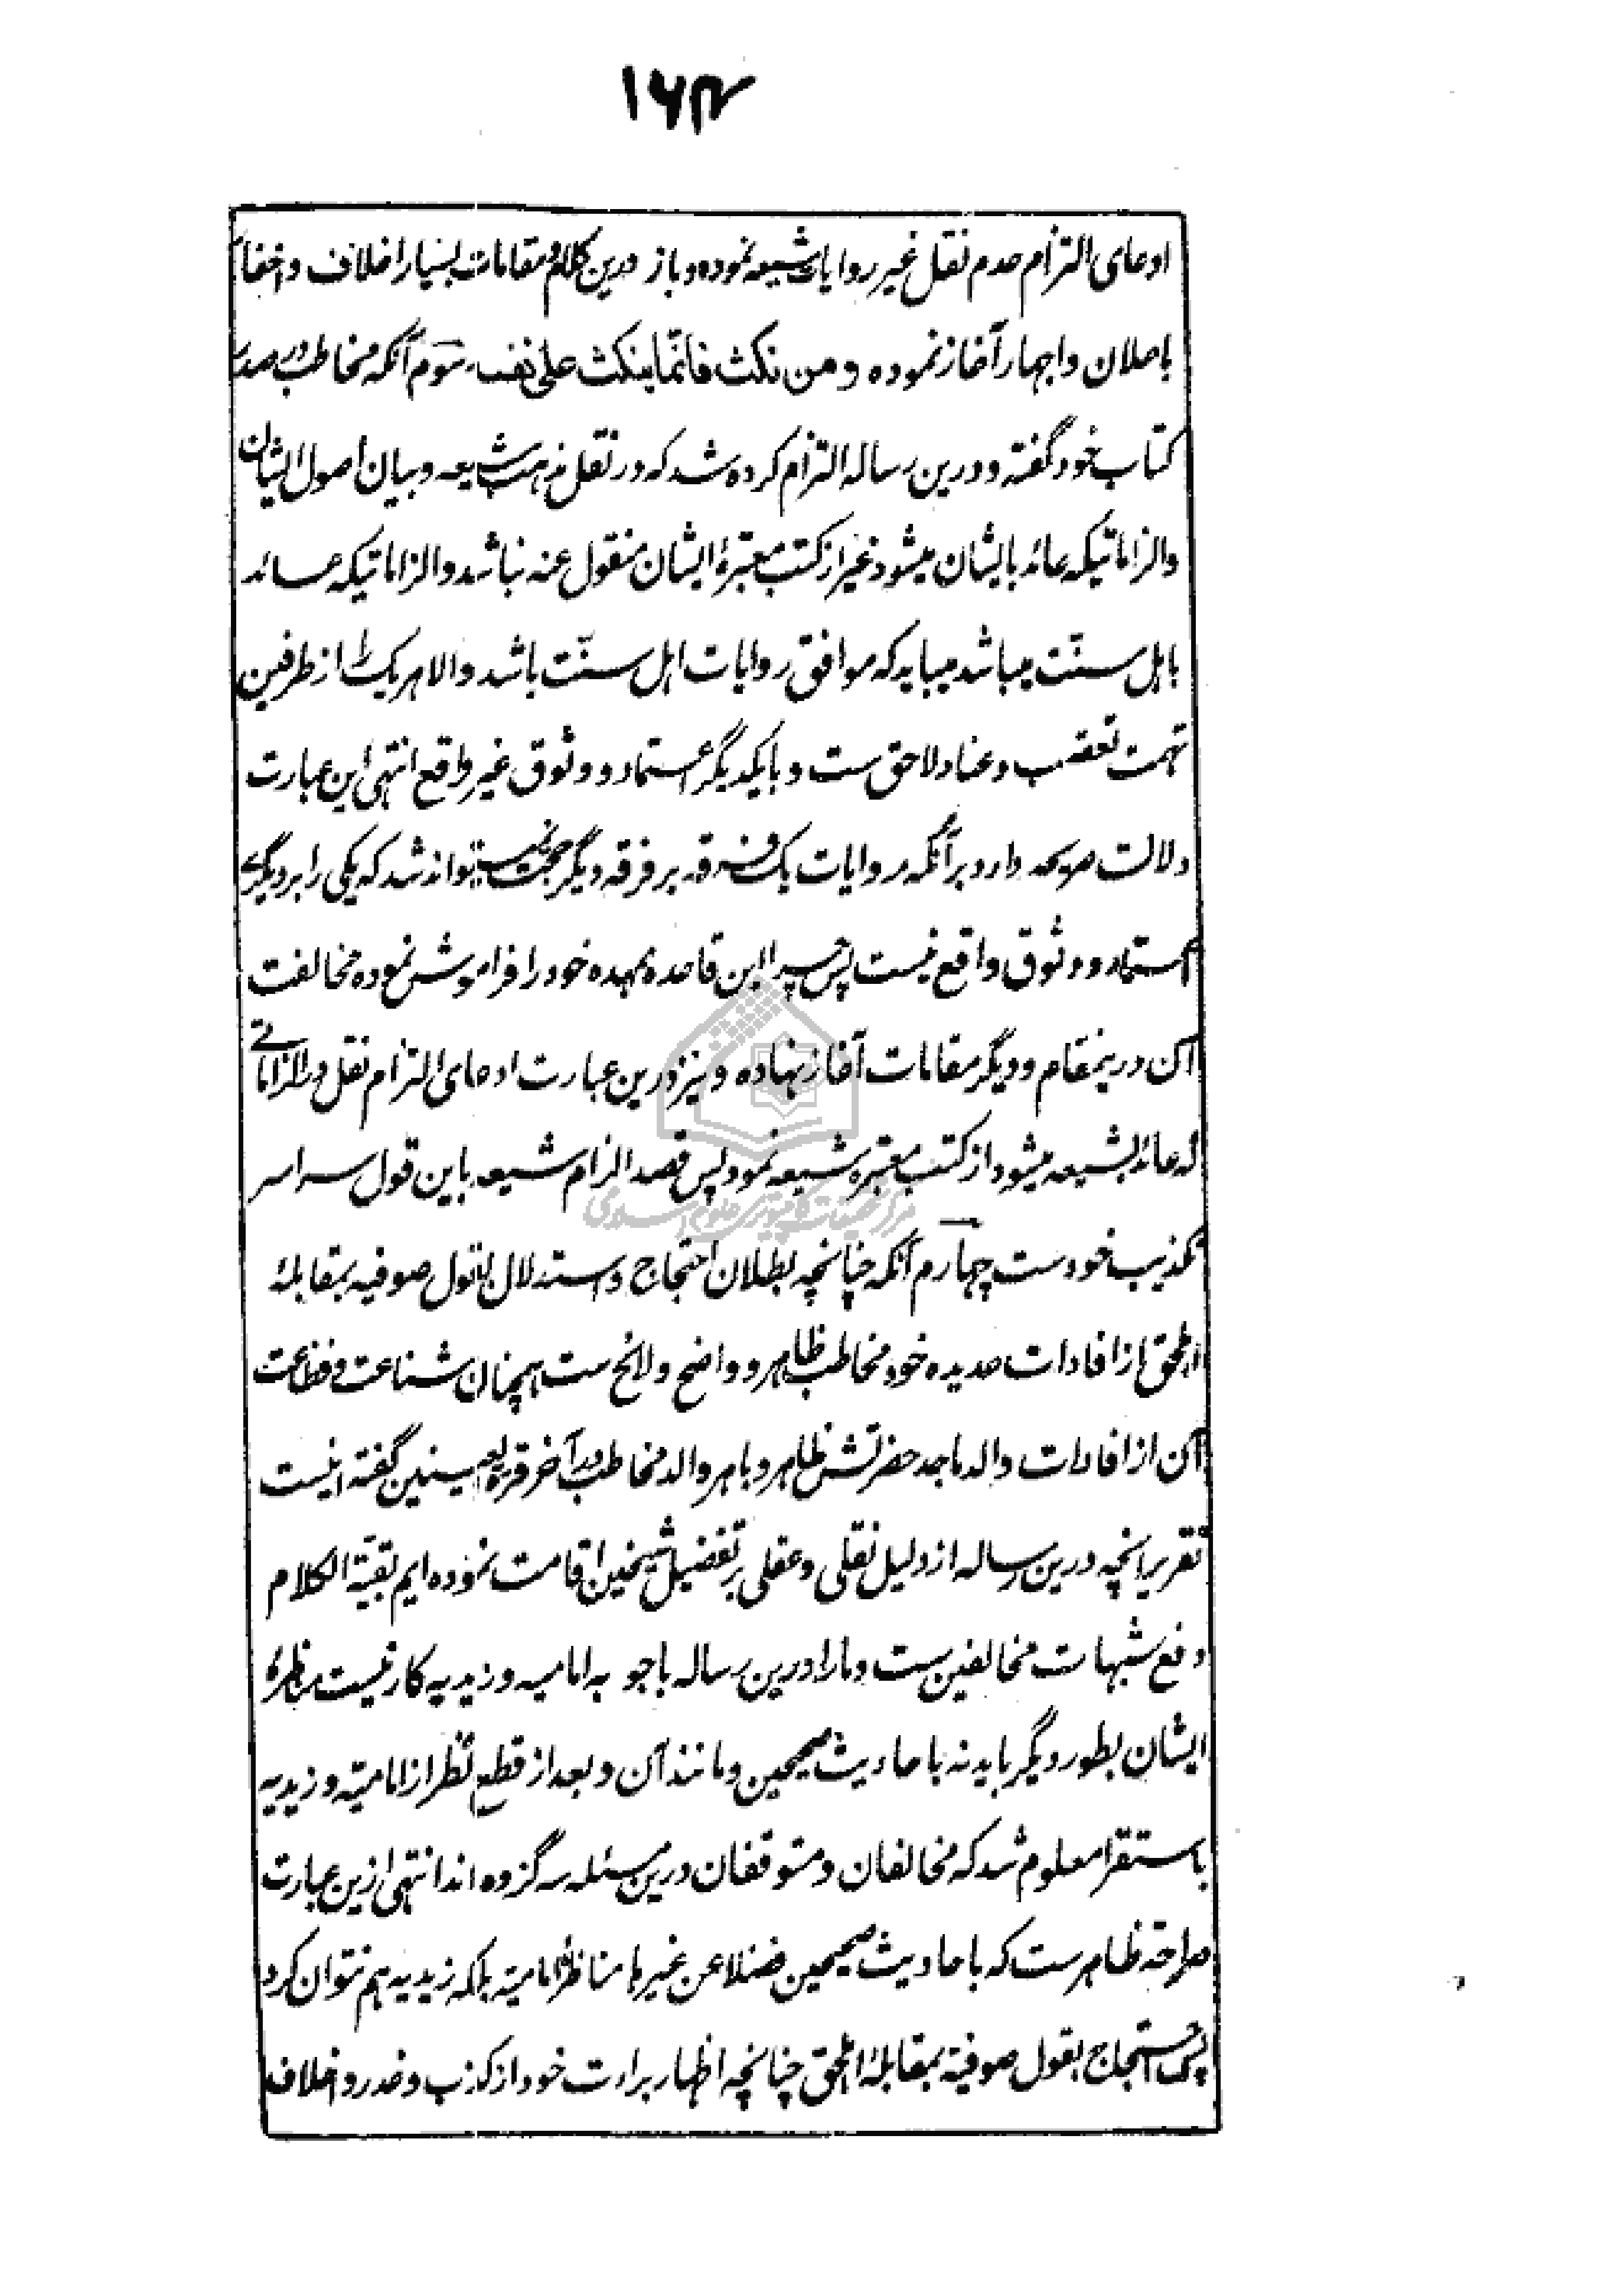 ۱۶۴
ادعای التزام عدم نقل غیر روایات شیعه نموده و باز درین کلام و مقامات بسیار اخلاف و اخفا
باعلان و اجهار آغاز نموده و من نکث فانّما ینکث علی نفسه سوم آنکه مخاطب در صدر
کتاب خود گفته و درین رساله التزام کرده شد که در نقل مذهب شیعه و بیان اصول ایشان
و الزاماتیکه عائد بایشان میشود غیر از کتب معتبرهٔ ایشان منقول عنه نباشد و الزاماتیکه عائد
باهل سنّت میباشد میباید که موافق روایات اهل سنّت باشد و الا هر یک را از طرفین
تهمت تعصب و عناد لاحق ست و با یکدیگر اعتماد و وثوق غیر واقع انتهی این عبارت
دلالت صریحه دارد بر آنکه روایات یک فرقه بر فرقه دیگر حجت نمیتواند شد که یکی را بر دیگری
اعتماد و وثوق واقع نیست پس چرا این قاعده ممهده خود را فراموش نموده مخالفت
آن درینمقام و دیگر مقامات آغاز نهاده و نیز درین عبارت ادعای التزام نقل در الزاماتی
که عائد بشیعه میشود از کتب معتبره شیعه نموده پس قصد الزام شیعه باین قول سراسر
تکذیب خودست چهارم آنکه چنانچه بطلان احتجاج و استدلال بقول صوفیه بمقابلهٔ
اهلحق از افادات عدیده خود مخاطب ظاهر و واضح و لائح ست همچنان شناعت و فظاعت
آن از افادات والد ماجد حضرتش ظاهر و باهر والد مخاطب در آخر قرة العینین گفته اینست
تقریر آنچه درین رساله از دلیل نقلی و عقلی بر تفضیل شیخین اقامت نموده ایم بقیّة الکلام
دفع شبهات مخالفین ست و ما را درین رساله با جوبهٔ امامیه و زیدیه کار نیست مناظرهٔ
ایشان بطور دیگر باید نه باحادیث صحیحین و مانند آن و بعد از قطع نظر از امامیّه و زیدیه
باستقرا معلوم شد که مخالفان و متوقفان درین مسئله سه گروه اند انتهی ازین عبارت
صراحة ظاهرست که باحادیث صحیحین فضلا عن غیرها مناظرهٔ امامیّه بلکه زیدیه هم نتوان کرد
پس احتجاج بقول صوفیّه بمقابلهٔ اهلحق چنانچه اظهار براءت خود از کذب و غدر و اخلاف
مرکز تحقیقات کامپیوتری علوم اسلامی